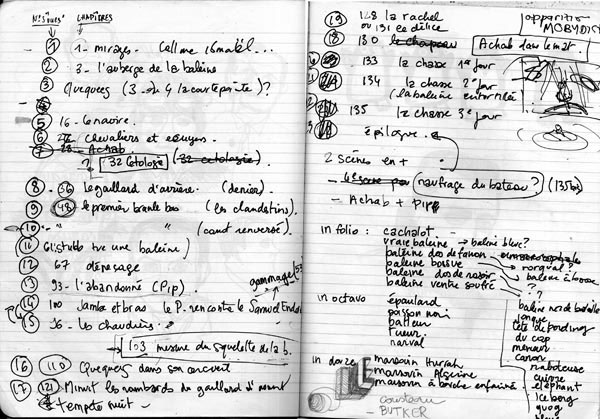 N° CHAPITRES
1 1 - mirages - Call me ismaël...
2 3 - l'auberge de la baleine
3 Queequeg (3 - 4 la courtepointe)?
5 16 - Le navire.
6 Chevaliers et écuyers.
7 28 - Achab
? 32 Cétologie (32 cétologie)
8 - 36 Le gaillard d'arrière. (denier).
9 48 le premier branle bas (les clandestins).
10 " " (canot renversé).
11 61 (stubb tue une baleine)
12 67 dépeçage
13 93 - l'abandonné (Pip)
14 100 Jambe et bras le P. rencontre le Samuel Enderby
15 96 - les chaudières
103 mesure du squelette de la b.
16 110 Queequeg dans son cercueil
17 121 Minuit les rambardes du gaillard d'avant
+ tempête nuit -
19 128 la rachel
ou 131 le délice
18 130 le chapeau
apparition
MOBYDICK
Achab dans le mat.
133 la chasse 1er jour
134 la chasse 2e jour
(la baleine entortillée)
135 la chasse 3e jour
épilogue.
2 scènes en +
- naufrage du bateau? (135 bis)
- Achab + PIP
in folio : cachalot -
vraie baleine → baleine bleue?
baleine dos de fanon -
baleine bossue rorqual?
baleine dos de rasoir baleine à bosse
baleine ventre soufré ?
in octavo épaulard
poisson noir
batteur
tueur
narval
jongue
du cap
canon
cuivre
elephant
iceberg
quog
in douze Marsouin Hurrah
Marsouin Algérine
Marsouin à bouche enfarinée
cousteau
- BUTKER